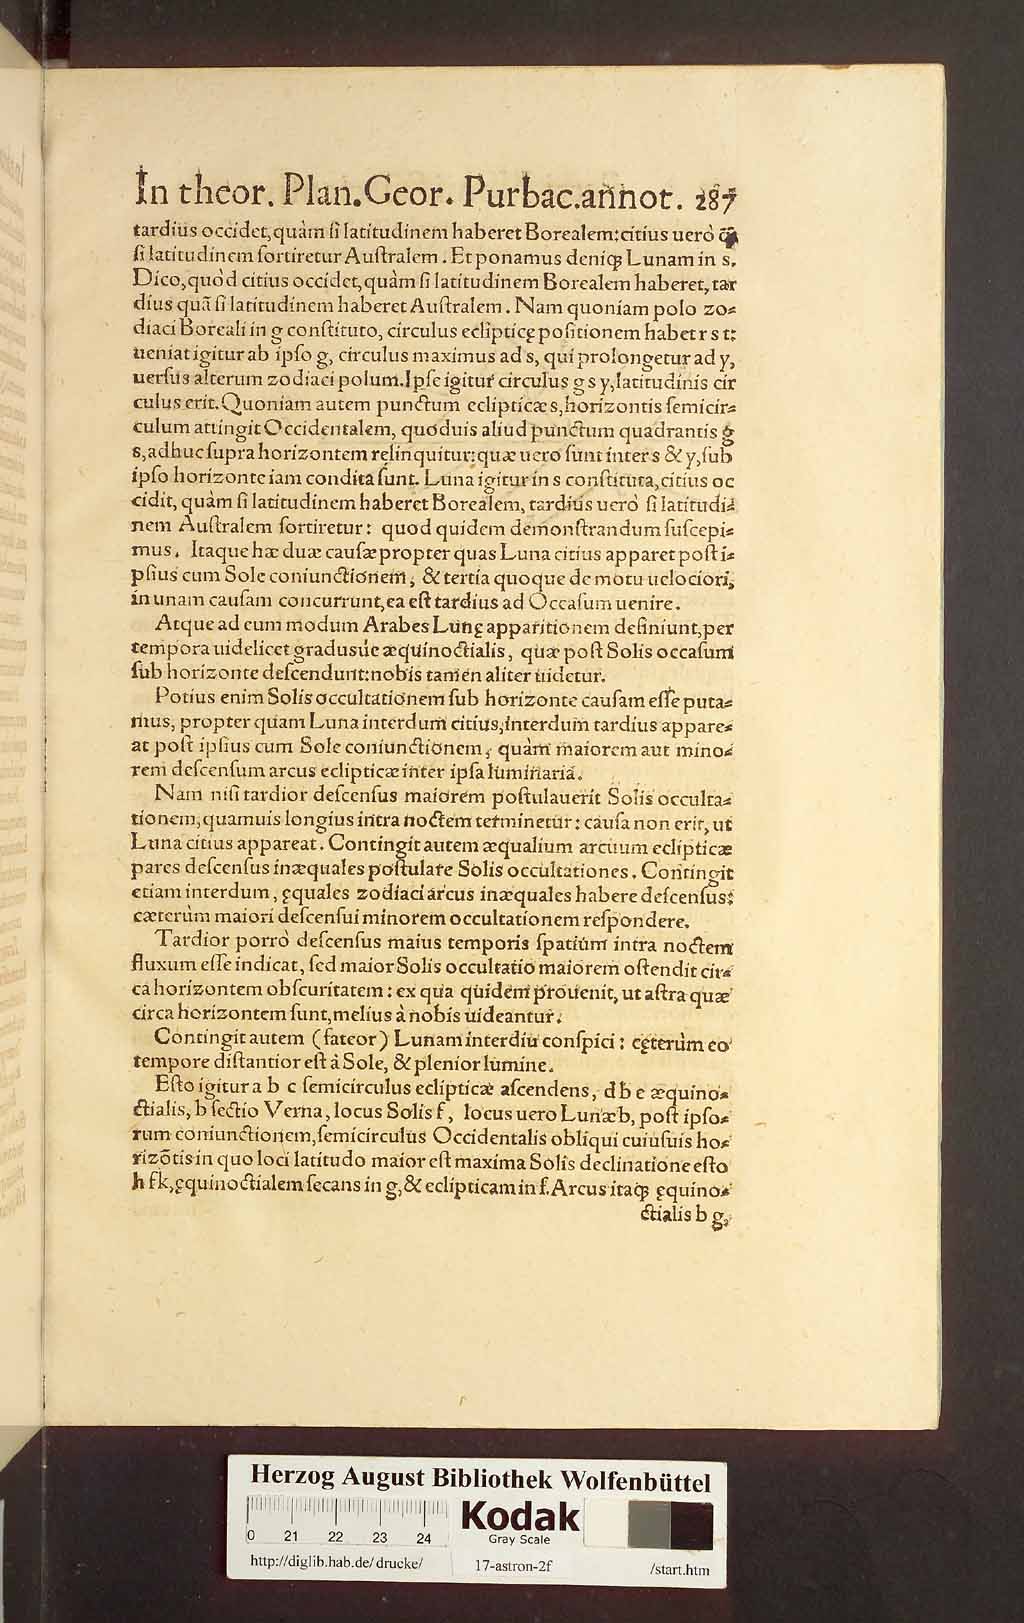 In theor. Plan. Geor. Purbac. annot. 287
tardius occidet, quàm ſi latitudinem haberet Borealem: citius uerò q̃
ſi latitudinem ſortiretur Auſtralem. Et ponamus deniqꝫ Lunam in s.
Dico, quòd citius occidet, quàm ſi latitudinem Borealem haberet, tar
dius quã ſi latitudinem haberet Auſtralem. Nam quoniam polo zo⸗
diaci Boreali in g conſtituto, circulus eclipticę poſitionem habet r s t:
ueniat igitur ab ipſo g, circulus maximus ad s, qui prolongetur ad y,
uerſus alterum zodiaci polum. Ipſe igitur circulus g s y, latitudinis cir
culus erit. Quoniam autem punctum eclipticæ s, horizontis ſemicir⸗
culum attingit Occidentalem, quoduis aliud punctum quadrantis g
s, adhuc ſupra horizontem relinquitur: quæ uero ſunt inter s & y, ſub
ipſo horizonte iam condita ſunt. Luna igitur in s conſtituta, citius oc
cidit, quàm ſi latitudinem haberet Borealem, tardius uerò ſi latitudi⸗
nem Auſtralem ſortiretur: quod quidem demonſtrandum ſuſcepi⸗
mus. Itaque hæ duæ cauſæ propter quas Luna citius apparet poſt i⸗
pſius cum Sole coniunctionem, & tertia quoque de motu uelociori,
in unam cauſam concurrunt, ea eſt tardius ad Occaſum uenire.
Atque ad eum modum Arabes Lunę apparitionem definiunt, per
tempora uidelicet gradusúe æquinoctialis, quæ poſt Solis occaſum
ſub horizonte deſcendunt: nobis tamen aliter uidetur.
Potius enim Solis occultationem ſub horizonte cauſam eſſe puta⸗
mus, propter quam Luna interdum citius, interdum tardius appare⸗
at poſt ipſius cum Sole coniunctionem, quàm maiorem aut mino⸗
rem deſcenſum arcus eclipticæ inter ipſa luminaria.
Nam niſi tardior deſcenſus maiorem poſtulauerit Solis occulta⸗
tionem, quamuis longius intra noctem terminetur: cauſa non erit, ut
Luna citius appareat. Contingit autem æqualium arcuum eclipticæ
pares deſcenſus inæquales poſtulare Solis occultationes. Contingit
etiam interdum, ęquales zodiaci arcus inæquales habere deſcenſus:
cæterùm maiori deſcenſui minorem occultationem reſpondere.
Tardior porrò deſcenſus maius temporis ſpatium intra noctem
fluxum eſſe indicat, ſed maior Solis occultatio maiorem oſtendit cir⸗
ca horizontem obſcuritatem: ex qua quidem prouenit, ut aſtra quæ
circa horizontem ſunt, melius à nobis uideantur.
Contingit autem (fateor) Lunam interdiu conſpici: cęterùm eo
tempore diſtantior eſt à Sole, & plenior lumine.
Eſto igitur a b c ſemicirculus eclipticæ aſcendens, d b e æquino⸗
ctialis, b ſectio Verna, locus Solis f, locus uero Lunæ b, poſt ipſo⸗
rum coniunctionem, ſemicirculus Occidentalis obliqui cuiuſuis ho⸗
rizõtis in quo loci latitudo maior eſt maxima Solis declinatione eſto
h f k, ęquinoctialem ſecans in g, & eclipticam in f. Arcus itaqꝫ ęquino⸗
ctialis b g,
Herzog August Bibliothek Wolfenbüttel
0 21 22 23 24
Kodak
Gray Scale
http://diglib.hab.de/drucke/ 17-astron-2f /start.htm